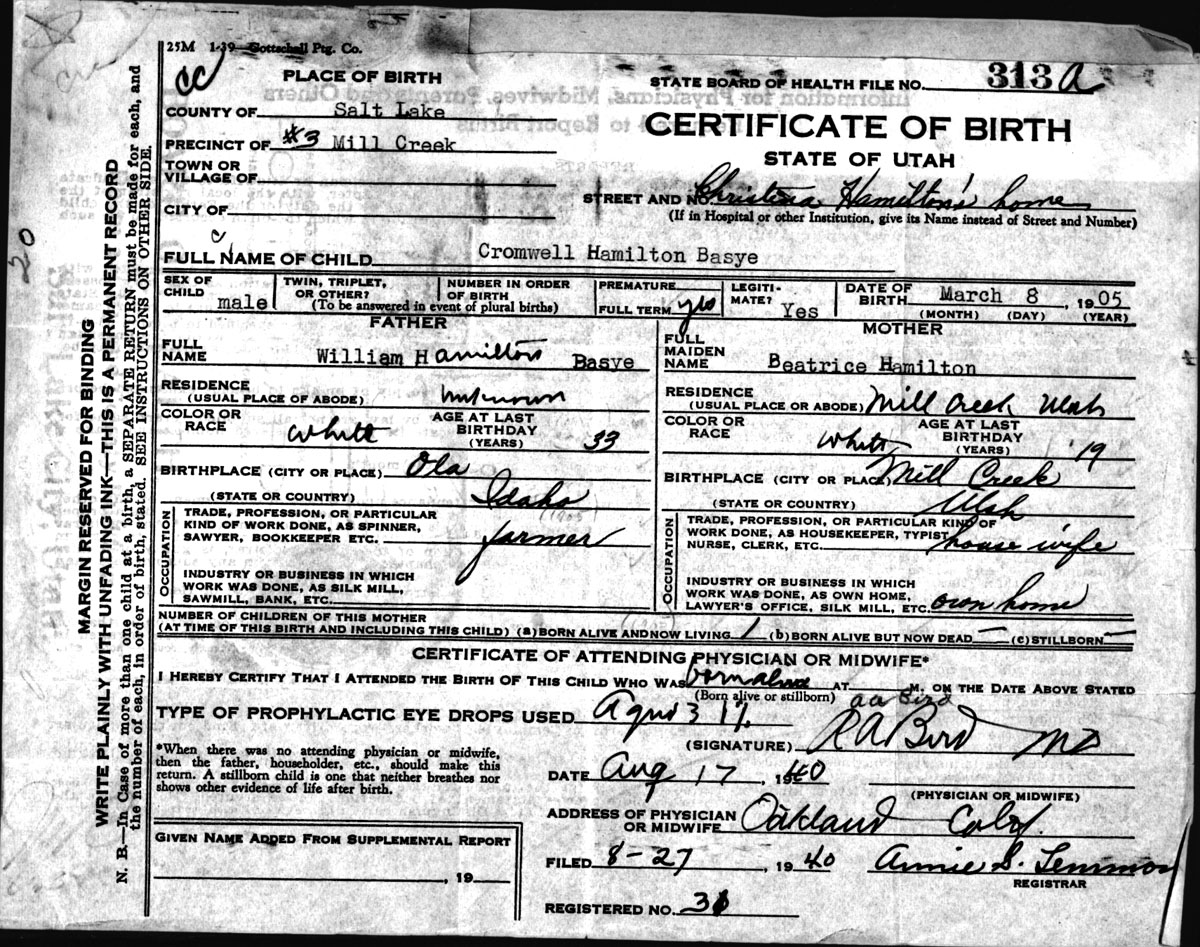 25M 1-39 Gottschall Ptg. Co.
PLACE OF BIRTH
STATE BOARD OF HEALTH FILE NO. 313 a
COUNTY OF Salt Lake
CERTIFICATE OF BIRTH
PRECINCT OF #3 Mill Creek
STATE OF UTAH
TOWN OR VILLAGE OF
STREET AND NO. Christena Hamilton's home
(If in Hospital or other Institution, give its Name instead of Street and Number)
CITY OF
cc
c
FULL NAME OF CHILD Cromwell Hamilton Basye
SEX OF CHILD male
TWIN, TRIPLET, OR OTHER?
NUMBER IN ORDER OF BIRTH
(To be answered in event of plural births)
PREMATURE
FULL TERM yes
LEGITI-MATE? Yes
DATE OF BIRTH March 8, 1905
(MONTH) (DAY) (YEAR)
FATHER
FULL NAME William Hamilton Basye
RESIDENCE (USUAL PLACE OF ABODE) unknown
COLOR OR RACE white
AGE AT LAST BIRTHDAY (YEARS) 33
BIRTHPLACE (CITY OR PLACE) Ola
(STATE OR COUNTRY) Idaho
OCCUPATION
TRADE, PROFESSION, OR PARTICULAR KIND OF WORK DONE, AS SPINNER, SAWYER, BOOKKEEPER ETC. farmer
(1905)
INDUSTRY OR BUSINESS IN WHICH WORK WAS DONE, AS SILK MILL, SAWMILL, BANK, ETC.
MOTHER
FULL MAIDEN NAME Beatrice Hamilton
RESIDENCE (USUAL PLACE OR ABODE) Mill Creek Utah
COLOR OR RACE white
AGE AT LAST BIRTHDAY (YEARS) 19
BIRTHPLACE (CITY OR PLACE) Mill Creek
(STATE OR COUNTRY) Utah
OCCUPATION
TRADE, PROFESSION, OR PARTICULAR KIND OF WORK DONE, AS HOUSEKEEPER, TYPIST NURSE, CLERK, ETC. house wife
INDUSTRY OR BUSINESS IN WHICH WORK WAS DONE, AS OWN HOME, LAWYER'S OFFICE, SILK MILL, ETC. own home
NUMBER OF CHILDREN OF THIS MOTHER
(AT TIME OF THIS BIRTH AND INCLUDING THIS CHILD) (a) BORN ALIVE AND NOW LIVING 1 (b) BORN ALIVE BUT NOW DEAD — (c) STILLBORN —
CERTIFICATE OF ATTENDING PHYSICIAN OR MIDWIFE*
I HEREBY CERTIFY THAT I ATTENDED THE BIRTH OF THIS CHILD WHO WAS born alive AT M. ON THE DATE ABOVE STATED
(Born alive or stillborn)
TYPE OF PROPHYLACTIC EYE DROPS USED Agno3 1%
aa Bird
(SIGNATURE) R A Bird MD
*When there was no attending physician or midwife, then the father, householder, etc., should make this return. A stillborn child is one that neither breathes nor shows other evidence of life after birth.
DATE Aug 17, 1940
(PHYSICIAN OR MIDWIFE)
ADDRESS OF PHYSICIAN OR MIDWIFE Oakland Calif.
GIVEN NAME ADDED FROM SUPPLEMENTAL REPORT
, 19
FILED 8-27 1940 Annie S. Lemmon
REGISTRAR
REGISTERED NO. 31
MARGIN RESERVED FOR BINDING
WRITE PLAINLY WITH UNFADING INK—THIS IS A PERMANENT RECORD
N. B.—In Case of more than one child at a birth, a SEPARATE RETURN must be made for each, and
the number of each, in order of birth, stated. SEE INSTRUCTIONS ON OTHER SIDE.
50